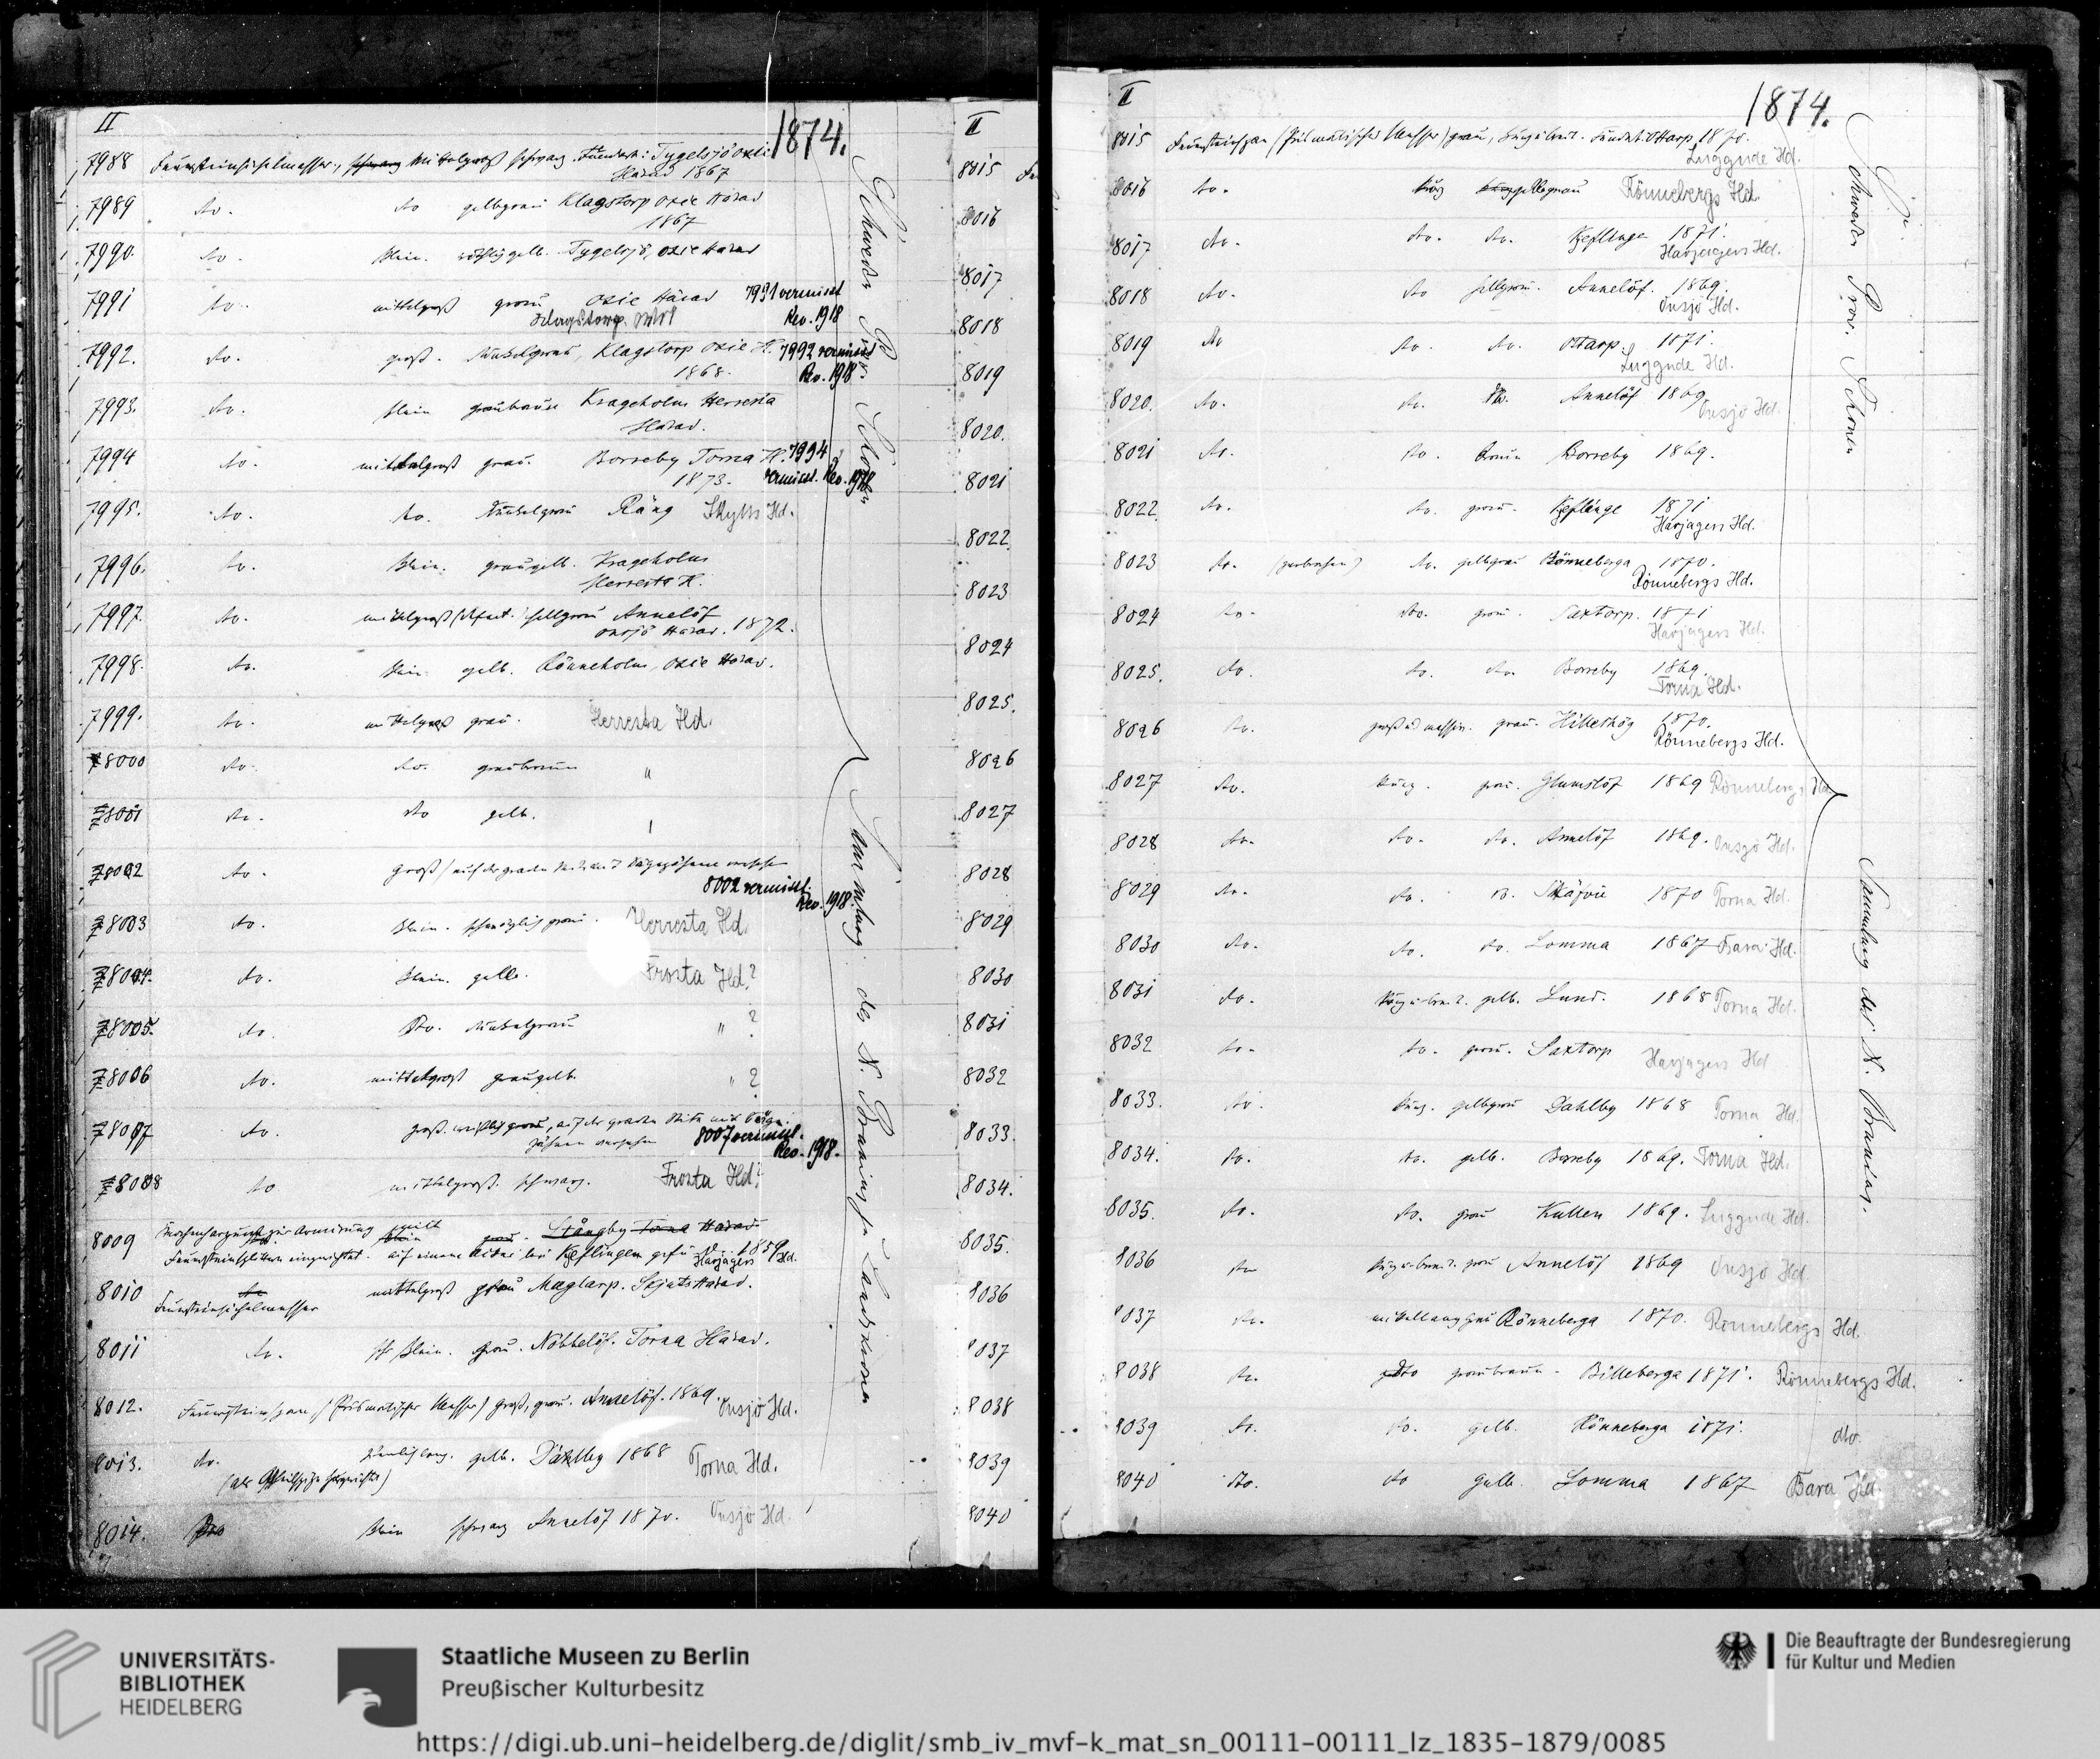 II
1874.
7988 Feuersteinsichelmesser, mittelgroß schwarz. Fundort: Tygelsjö Oxie
Härad 1867
7989 do. do gelbgrau Klagstorp Oxie Härad
1867
7990. do. klein. röthlichgelb. Tygelsjö, Oxie Härad
7991 do. mittelgroß grau Oxie Härad 7991 vermisst
Klagstorp. Rev. 1918
7992. do. groß. dunkelgrau, Klagstorp Oxie H. 7992 vermisst
1868. Rev. 1918
7993. do. klein graubraun Krageholm Herresta
Härad.
7994 do. mittelgroß grau. Borreby Torna H. 7994
1873. vermisst. Rev. 1918
7995. do. do. dunkelgrau Räng Skytts Hd.
7996. do. klein. graugelb. Krageholm
Herresta H.
7997. do. mittelgroß (defect.) hellgrau Annelöf
Onsjö Härad. 1872.
7998. do. klein gelb. Rönneholm, Oxie Härad.
7999. do. mittelgroß grau. Herresta Hd.
8000 do. do. graubraun "
8001 do. do gelb.
8002 do. groß (auf der graden Seite mit Sägezähnen versehen
8002 vermisst.
Rev. 1918.
8003 do. klein. schmutzig grau. Herresta Hd.
8004. do. klein. gelb. Frosta Hd.?
8005. do. do. dunkelgrau " ?
8006 do. mittelgroß graugelb. " ?
8007 do. groß. weißlich grau, auf der graden Seite mit Säge-
zähnen versehen 8007 vermisst.
Rev. 1918.
8008 do mittelgroß. schwarz. Frosta Hd?
8009 Knochenharpune zur Armirung mit Stångby Torna Härad
Feuersteinsplittern eingerichtet. auf einem Acker bei Kjeflingen gefund. 1859
Harjagers Hd.
8010 Feuersteinsichelmesser mittelgroß grau Maglarp. Skjuts Härad.
8011 do. sehr klein. grau. Nöbbelöf. Torna Härad.
8012. Feuersteinspan (Prismatisches Messer) groß, grau. Annelöf. 1869. Onsjö Hd.
8013. do. ziemlich lang. gelb. Dahlby 1868 Torna Hd.
(als Pfeilspitze hergerichtet)
8014. do klein schwarz Annelöf 1870. Onsjö Hd.
Schweden Prov. Schonen
Sammlung des N. Bruningson Landskrona
II
8015
8016
8017
8018
8019
8020.
8021
8022.
8023
8024
8025.
8026
8027
8028
8029
8030
8031
8032
8033.
8034.
8035.
8036
8037
8038
8039
8040
II
1874.
8015 Feuersteinspan (Prismatisches Messer) grau, lang u. breit. Fundort: Ottarp 1870.
Luggude Hd.
8016 do. lang gelbgrau Rönnebergs Hd.
8017 do. do. do. Kjeflinge 1871.
Harjagers Hd.
8018 do. do hellgrau. Annelöf. 1869.
Onsjö Hd.
8019 do do. do. Ottarp. 1871.
Luggude Hd.
8020. do. do. do. Annelöf 1869 Onsjö Hd.
8021 do. do. braun Borreby 1869.
8022. do. do. grau. Kjeflinge 1871
Harjagers Hd.
8023 do. (zerbrochen) do. gelbgrau Rönneberga 1870.
Rönnebergs Hd.
8024 do. do. grau. Saxtorp. 1871
Harjagers Hd.
8025. do. do. do. Borreby 1869.
Torna Hd.
8026 do. groß u. massiv. grau. Hilleshög 1870.
Rönnebergs Hd.
8027 do. lang. grau. Glumslöf 1869 Rönnebergs Hd.
8028 do. do. do. Annelöf 1869. Onsjö Hd.
8029 do. do. do. Skäfvie 1870 Torna Hd.
8030 do. do. do. Lomma 1867 Bara Hd.
8031 do. lang u. breit. gelb. Lund. 1868 Torna Hd.
8032 do. do. grau. Saxtorp Harjagers Hd
8033. do. lang. gelbgrau Dahlby 1868 Torna Hd.
8034. do. do. gelb. Borreby 1869. Torna Hd.
8035. do. do. grau Kullen 1869. Luggude Hd.
8036 do lang u. breit. grau Annelöf 1869 Onsjö Hd.
8037 do. mittellang grau Rönneberga 1870. Rönnebergs Hd.
8038 do. do graubraun. Billeberga 1871. Rönnebergs Hd.
8039 do. do. gelb. Rönneberga 1871. dto.
8040 do. do gelb. Lomma 1867 Bara Hd.
Schweden Prov. Schonen
Sammlung des N. Bruningson
UNIVERSITÄTS-
BIBLIOTHEK
HEIDELBERG
Staatliche Museen zu Berlin
Preußischer Kulturbesitz
Die Beauftragte der Bundesregierung
für Kultur und Medien
https://digi.ub.uni-heidelberg.de/diglit/smb_iv_mvf-k_mat_sn_00111-00111_lz_1835-1879/0085